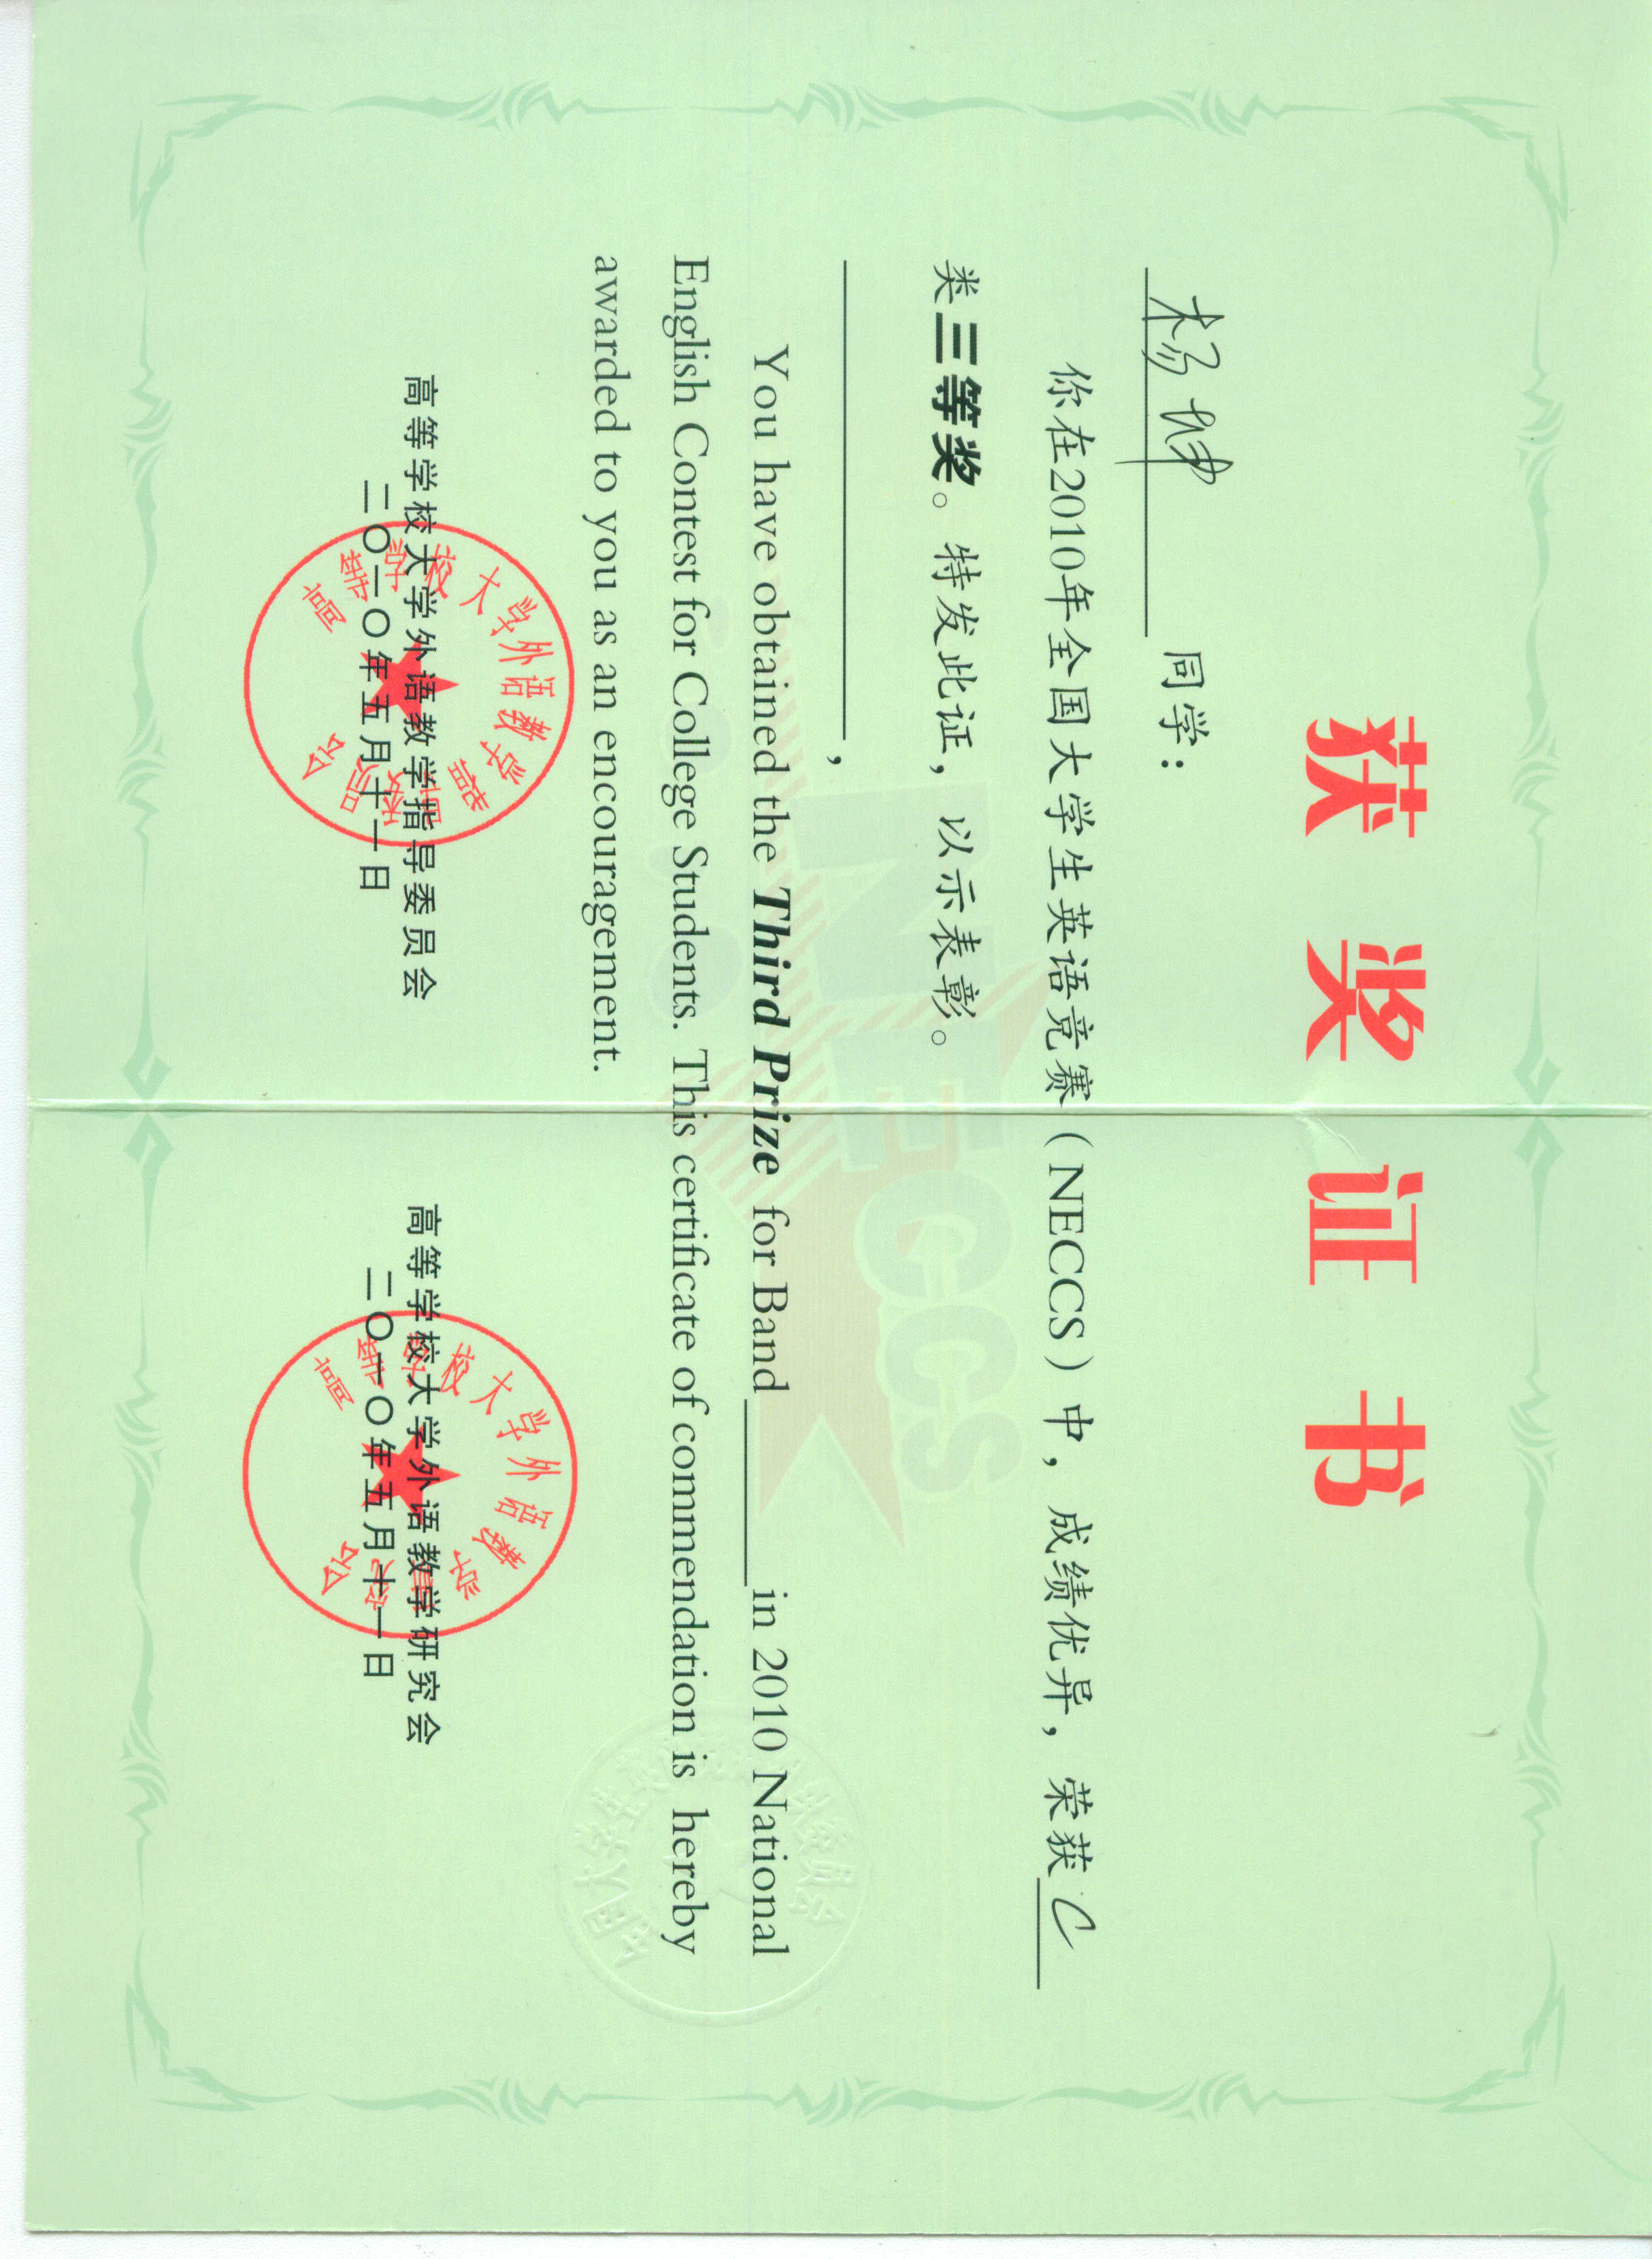 获奖证书
杨坤 同学：
你在2010年全国大学生英语竞赛（NECCS）中，成绩优异，荣获 C
类三等奖。特发此证，以示表彰。
,
You have obtained the Third Prize for Band in 2010 National
English Contest for College Students. This certificate of commendation is hereby
awarded to you as an encouragement.
高等学校大学外语教学指导委员会
二〇一〇年五月十一日
高等学校大学外语教学研究会
二〇一〇年五月十一日
高等学校大学外语教学指导委员会
高等学校大学外语教学研究会
NECCS